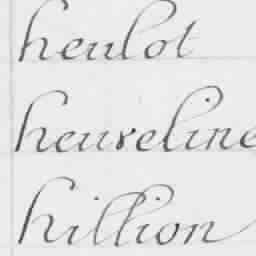 heulot
heureline
hillion